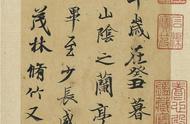 年歲在癸丑暮
山陰之蘭亭
畢至少長咸
茂林脩竹又